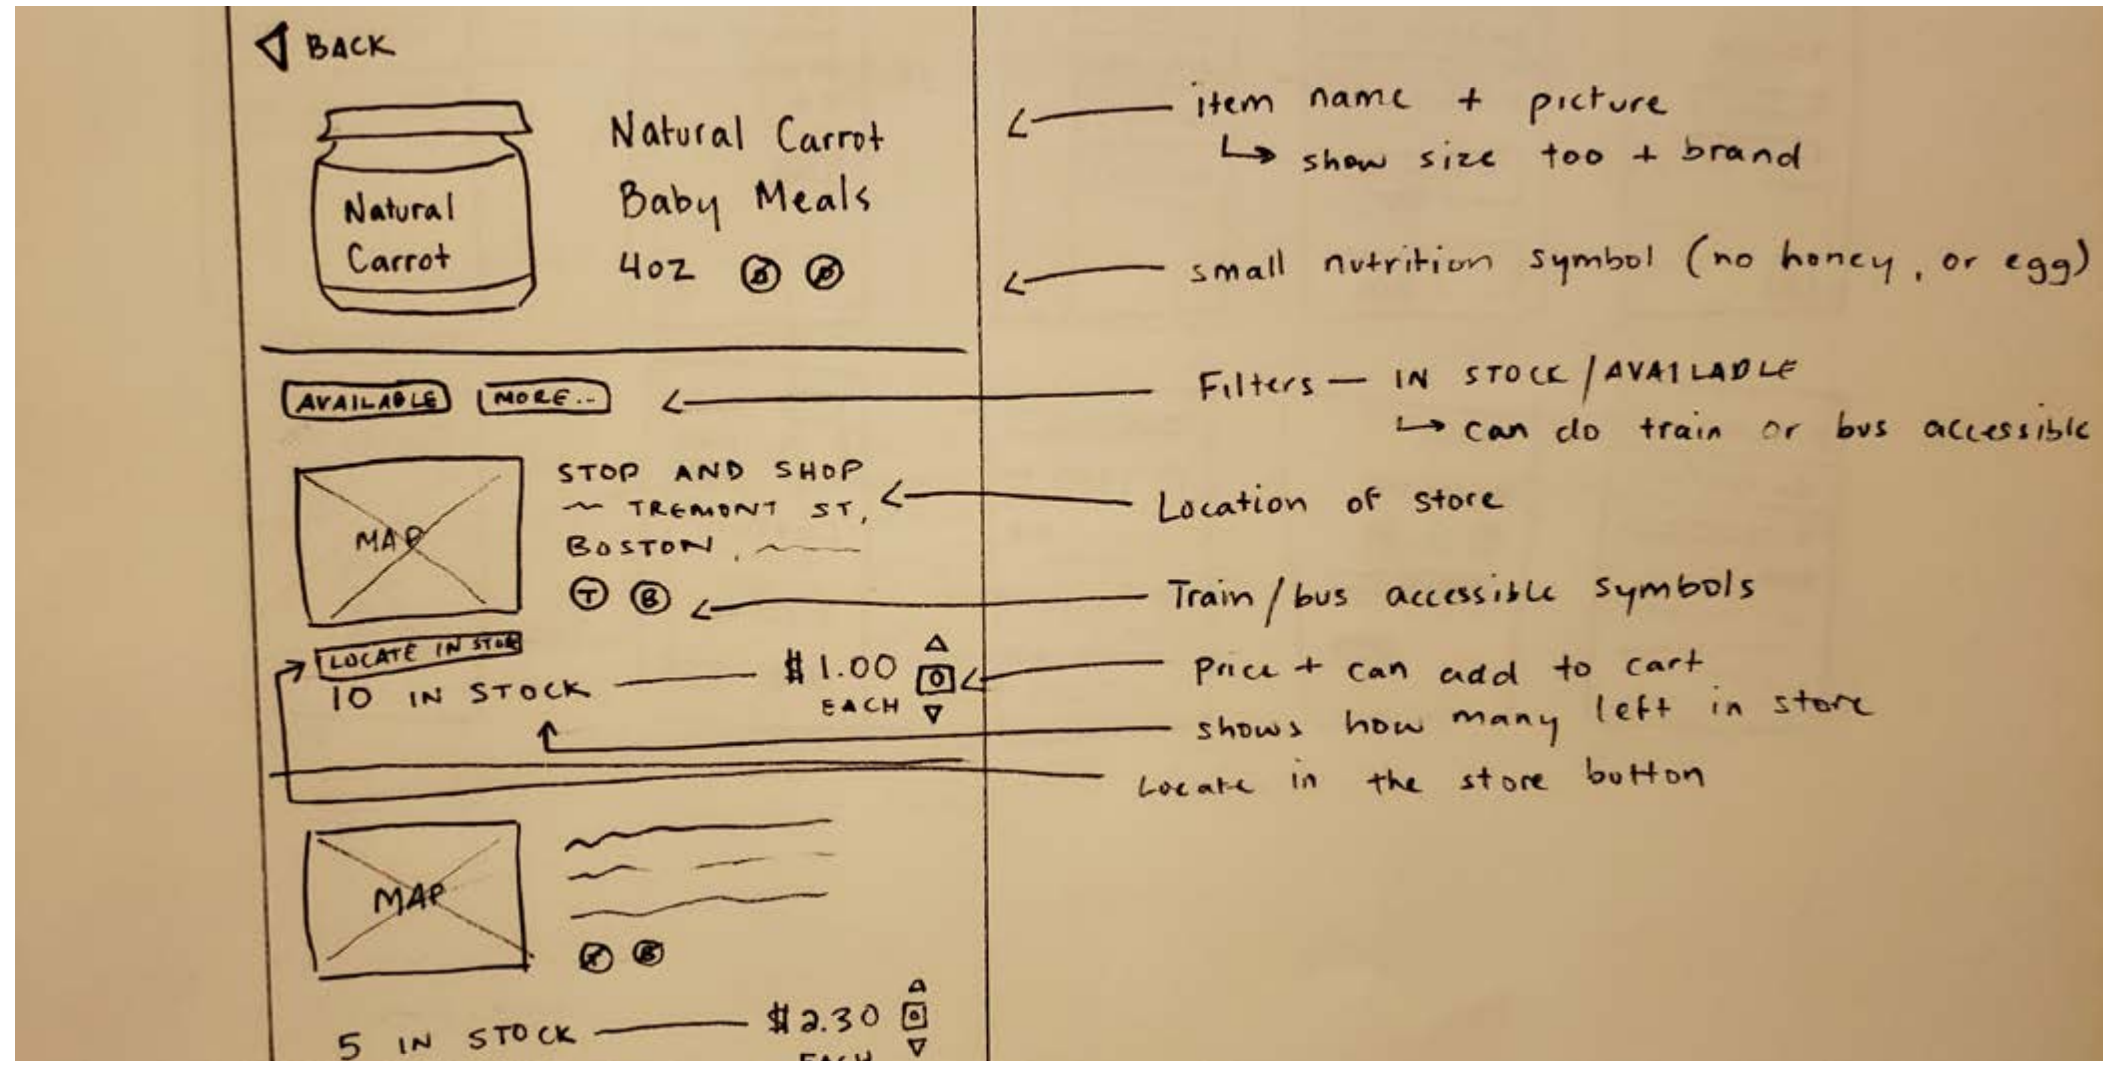 BACK
Natural
Carrot
Natural Carrot
Baby Meals
4oz
item name + picture
↳ show size too + brand
small nutrition symbol (no honey, or egg)
AVAILABLE MORE...
Filters — IN STOCK / AVAILABLE
↳ can do train or bus accessible
MAP
STOP AND SHOP
~ TREMONT ST,
BOSTON,
T B
Location of store
Train/bus accessible symbols
LOCATE IN STORE
10 IN STOCK — $1.00 0
EACH
Price + can add to cart
shows how many left in store
Locate in the store button
MAP
T B
5 IN STOCK — $2.30 0
EACH